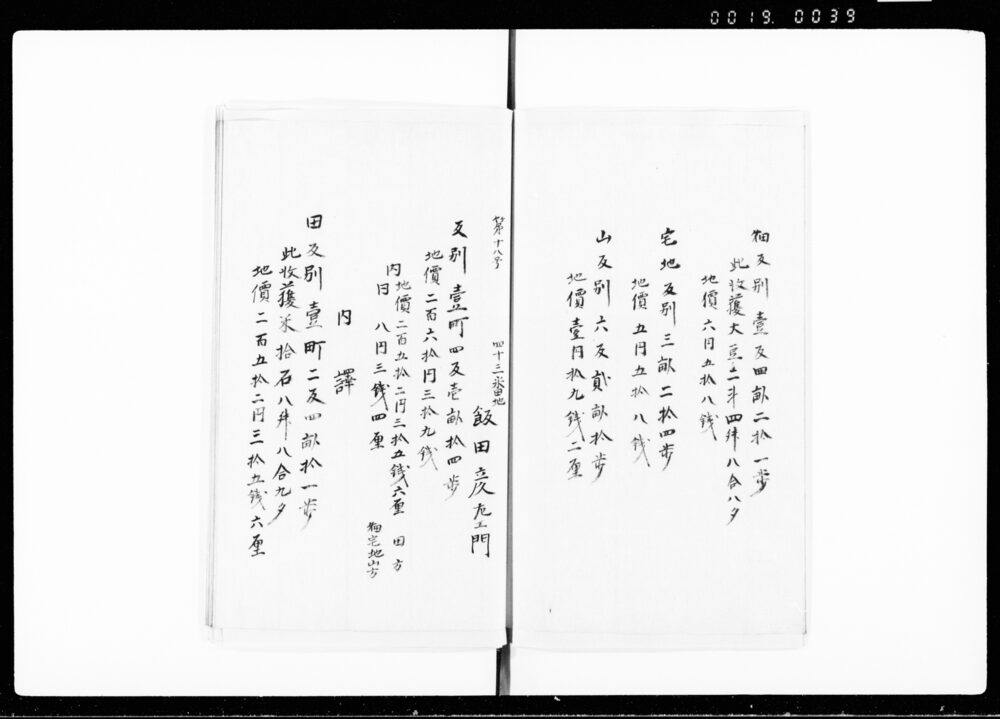 0019. 0039
畑反別壹反四畝二拾一歩
此收獲大豆二斗四舛八合八夕
地價六円五拾八錢
宅地反別三畝二拾四歩
地價五円五拾八錢
山反別六反貮畝拾歩
地價壹円拾九錢二厘
第十八号
四十三番地
飯田彦左エ門
反別壹町四反壹畝拾四歩
地價二百六拾円三拾九錢
内地價二百五拾二円三拾五錢六厘 田方
円八円三錢四厘 畑宅地山方
内譯
田反別壹町二反四畝拾一歩
此收獲米拾石八舛八合九夕
地價二百五拾二円三拾五錢六厘